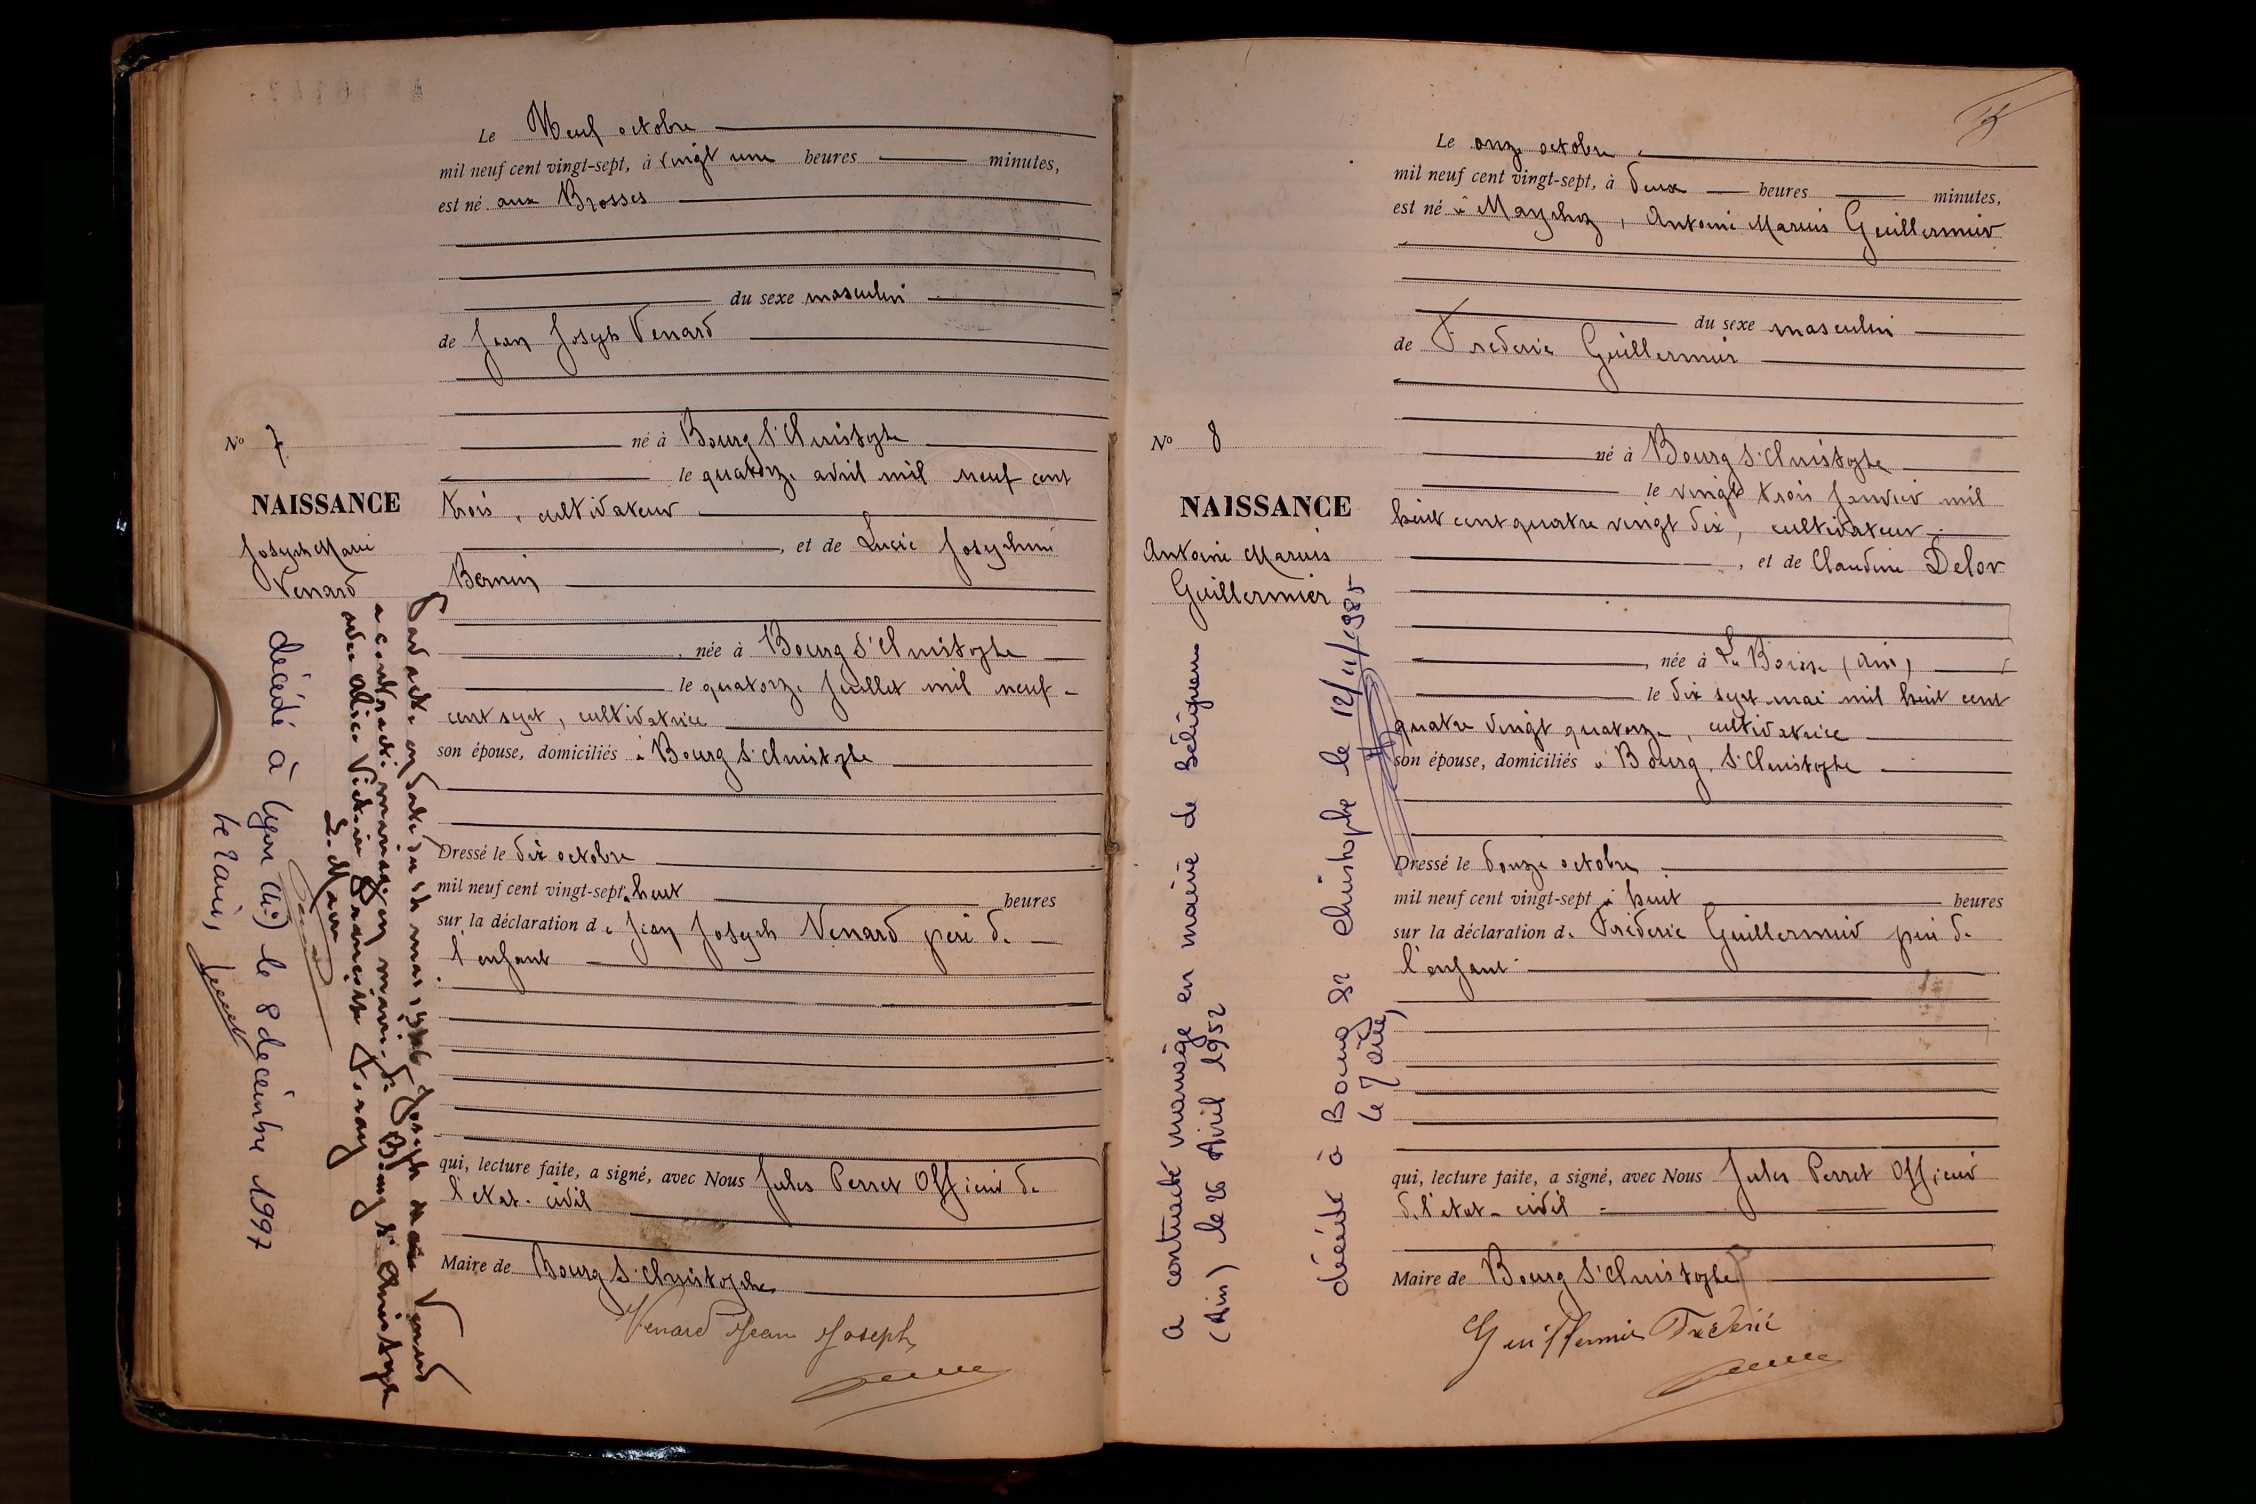 Le Neuf octobre
mil neuf cent vingt-sept, à vingt une heures minutes,
est né aux Brosses
du sexe masculin
de Jean Joseph Venard
né à Bourg St Christophe
le quatorze avril mil neuf cent
trois, cultivateur
, et de Lucie Josephine
Bernin
, née à Bourg St Christophe
le quatorze Juillet mil neuf
cent sept, cultivatrice
son épouse, domiciliés à Bourg St Christophe
Dressé le dix octobre
mil neuf cent vingt-sept à huit heures
sur la déclaration de Jean Joseph Venard père de
l'enfant
qui, lecture faite, a signé, avec Nous Jules Perret Officier de
l'etat-civil
Maire de Bourg St Christophe
Venard Jean Joseph
No 7
NAISSANCE
Joseph Marie
Venard
a contracté mariage en mairie de Bourg St Christophe
avec Alice Victoire Françoise
Le Maire
décédé à Lyon (4e) le 8 décembre 1997
Le Maire,
Le onze octobre
mil neuf cent vingt-sept, à deux heures minutes,
est né à Maychoz, Antoine Marius Guillermier
du sexe masculin
de Frederic Guillermier
né à Bourg St Christophe
le vingt trois Janvier mil
huit cent quatre vingt dix, cultivateur
, et de Claudine Delor
, née à La Boisse (Ain)
le dix sept mai mil huit cent
quatre vingt quatorze, cultivatrice
son épouse, domiciliés à Bourg St Christophe
Dressé le douze octobre
mil neuf cent vingt-sept à huit heures
sur la déclaration de Fréderic Guillermier père de
l'enfant
qui, lecture faite, a signé, avec Nous Jules Perret Officier
de l'etat-civil
Maire de Bourg St Christophe
Guillermier Frédéric
No 8
NAISSANCE
Antoine Marius
Guillermier
a contracté mariage en mairie de Béligneux
(Ain) le 26 Avril 1952
décédé à Bourg St Christophe le 12/11/1985
Le Maire,